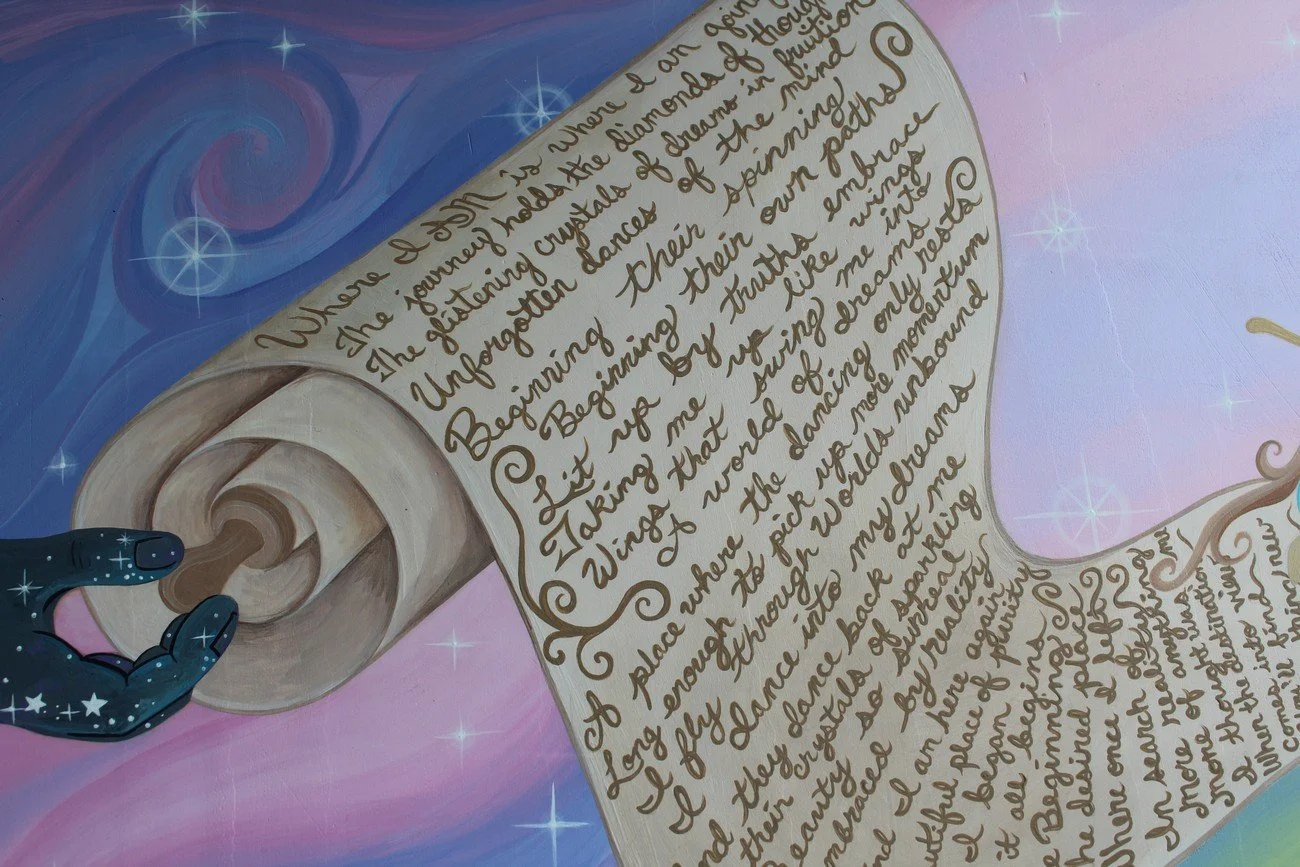 Where I AM is where I am going
The journey holds the diamonds of thought
The glistening crystals of dreams in fruition
Unforgotten dances of the mind
Beginning their spinning
Beginning their own paths
Lit up by truths embrace
Taking me up like wings
Wings that swing me into
A world of dreams
A place where the dancing only rests
Long enough to pick up more momentum
I fly through Worlds unbound
I dance into my dreams
And they dance back at me
their crystals of sparkling
Beauty so surreal
Embraced by reality
And I am here again
Beautiful place of purity
I began
it all begins
Beginning
the desired place
Where once I left
In search of
More reality
More of any
I thought was
In the destination
When into view
Comes, line
new